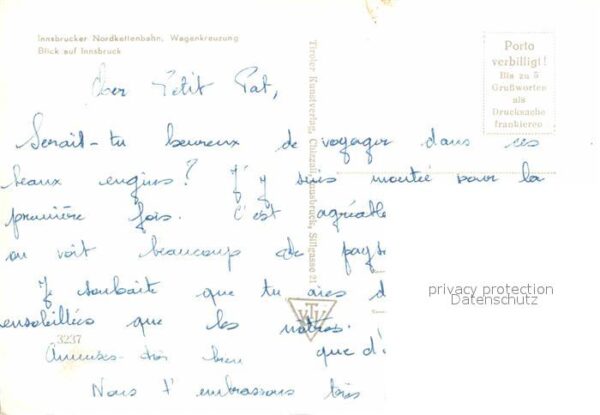 Innsbrucker Nordkettenbahn, Wagenkreuzung
Blick auf Innsbruck
Cher Petit Pat,
Serait-tu heureux de voyager dans ces
beaux engins? J'y suis montée pour la
première fois. C'est agréable
on voit beaucoup de pays
Je souhaite que tu aies d
ensoleillées que les nôtres.
Amuses-toi bien que d'
Nous t'embrassons très
3237
Tiroler Kunstverlag, Chizzali, Innsbruck, Sillgasse 21
KTV
Porto
verbilligt!
Bis zu 5
Grußworten
als
Drucksache
frankieren
privacy protection
Datenschutz